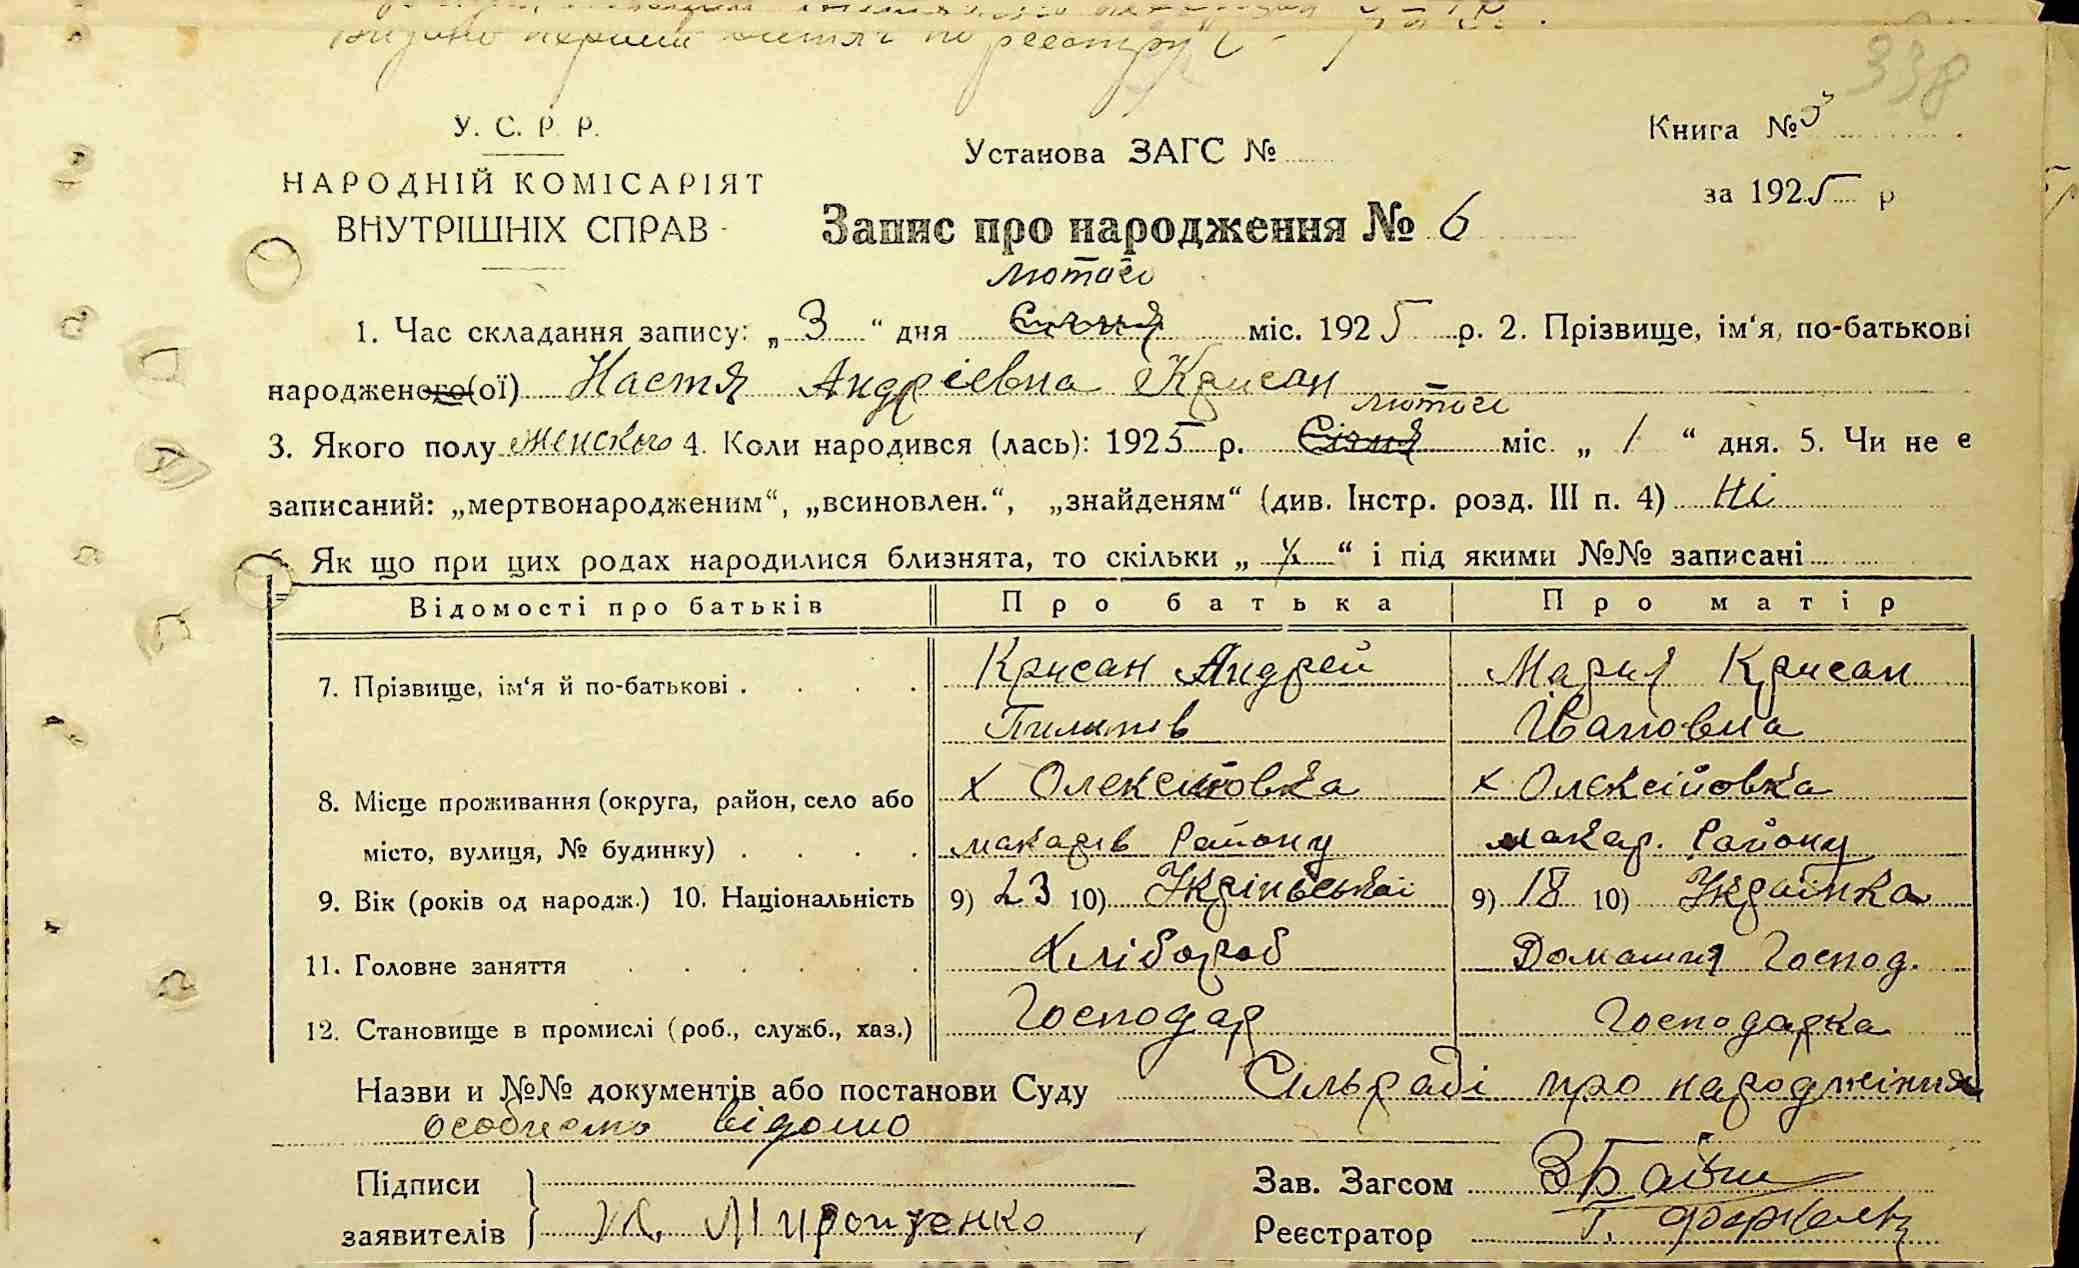 338
У. С. Р. Р.
НАРОДНІЙ КОМІСАРІЯТ
ВНУТРІШНІХ СПРАВ
Установа ЗАГС №
Книга № 3
за 1925 р
Запис про народження № 6
лютого
1. Час складання запису: „ 3 “ дня Січня міс. 1925 р. 2. Прізвище, ім‘я, по-батькові
народженого(ої) Настя Андріевна Крисан
лютого
3. Якого полу женского 4. Коли народився (лась): 1925 р. Січня міс. „ 1 “ дня. 5. Чи не є
записаний: „мертвонародженим“, „всиновлен.“, „знайденям“ (див. Інстр. розд. III п. 4) Ні
Як що при цих родах народилися близнята, то скільки „ “ і під якими №№ записані
Відомості про батьків Про батька Про матір
7. Прізвище, ім‘я й по-батькові . . . . Крисан Андрей Мария Крисан
Пилипів Івановна
х Олексійовка х Олексійовка
8. Місце проживання (округа, район, село або
місто, вулиця, № будинку) . . . . макарів Району макар. Району
9. Вік (років од народж.) 10. Національність 9) 23 10) 9) 18 10) Українка
11. Головне заняття . . . . . . Хлібороб Домашня Господ.
12. Становище в промислі (роб., служб., хаз.) Господар Господарка
Назви и №№ документів або постанови Суду Сільраді про народжіння
особисто відомо
Підписи
заявителів
Зав. Загсом
Реєстратор